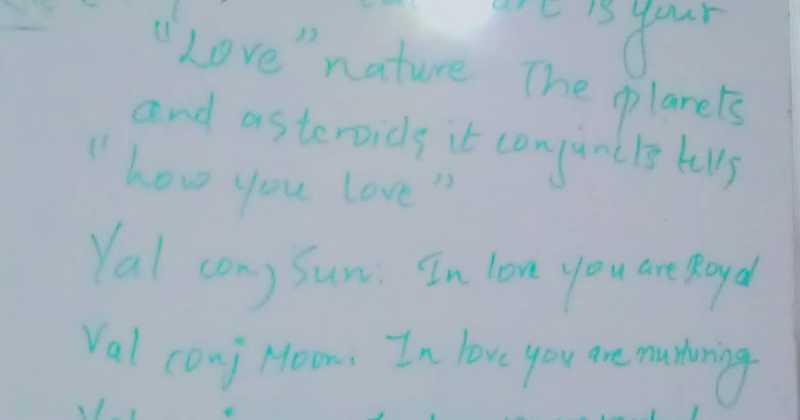 is your
"Love" nature The planets
and asteroids it conjuncts tells
"how you love"
Val conj Sun: In love you are Royal
Val conj Moon: In love you are nurturing